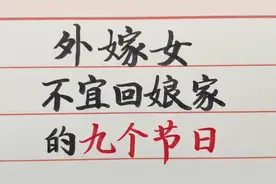 外嫁女
不宜回娘家
的九个节日